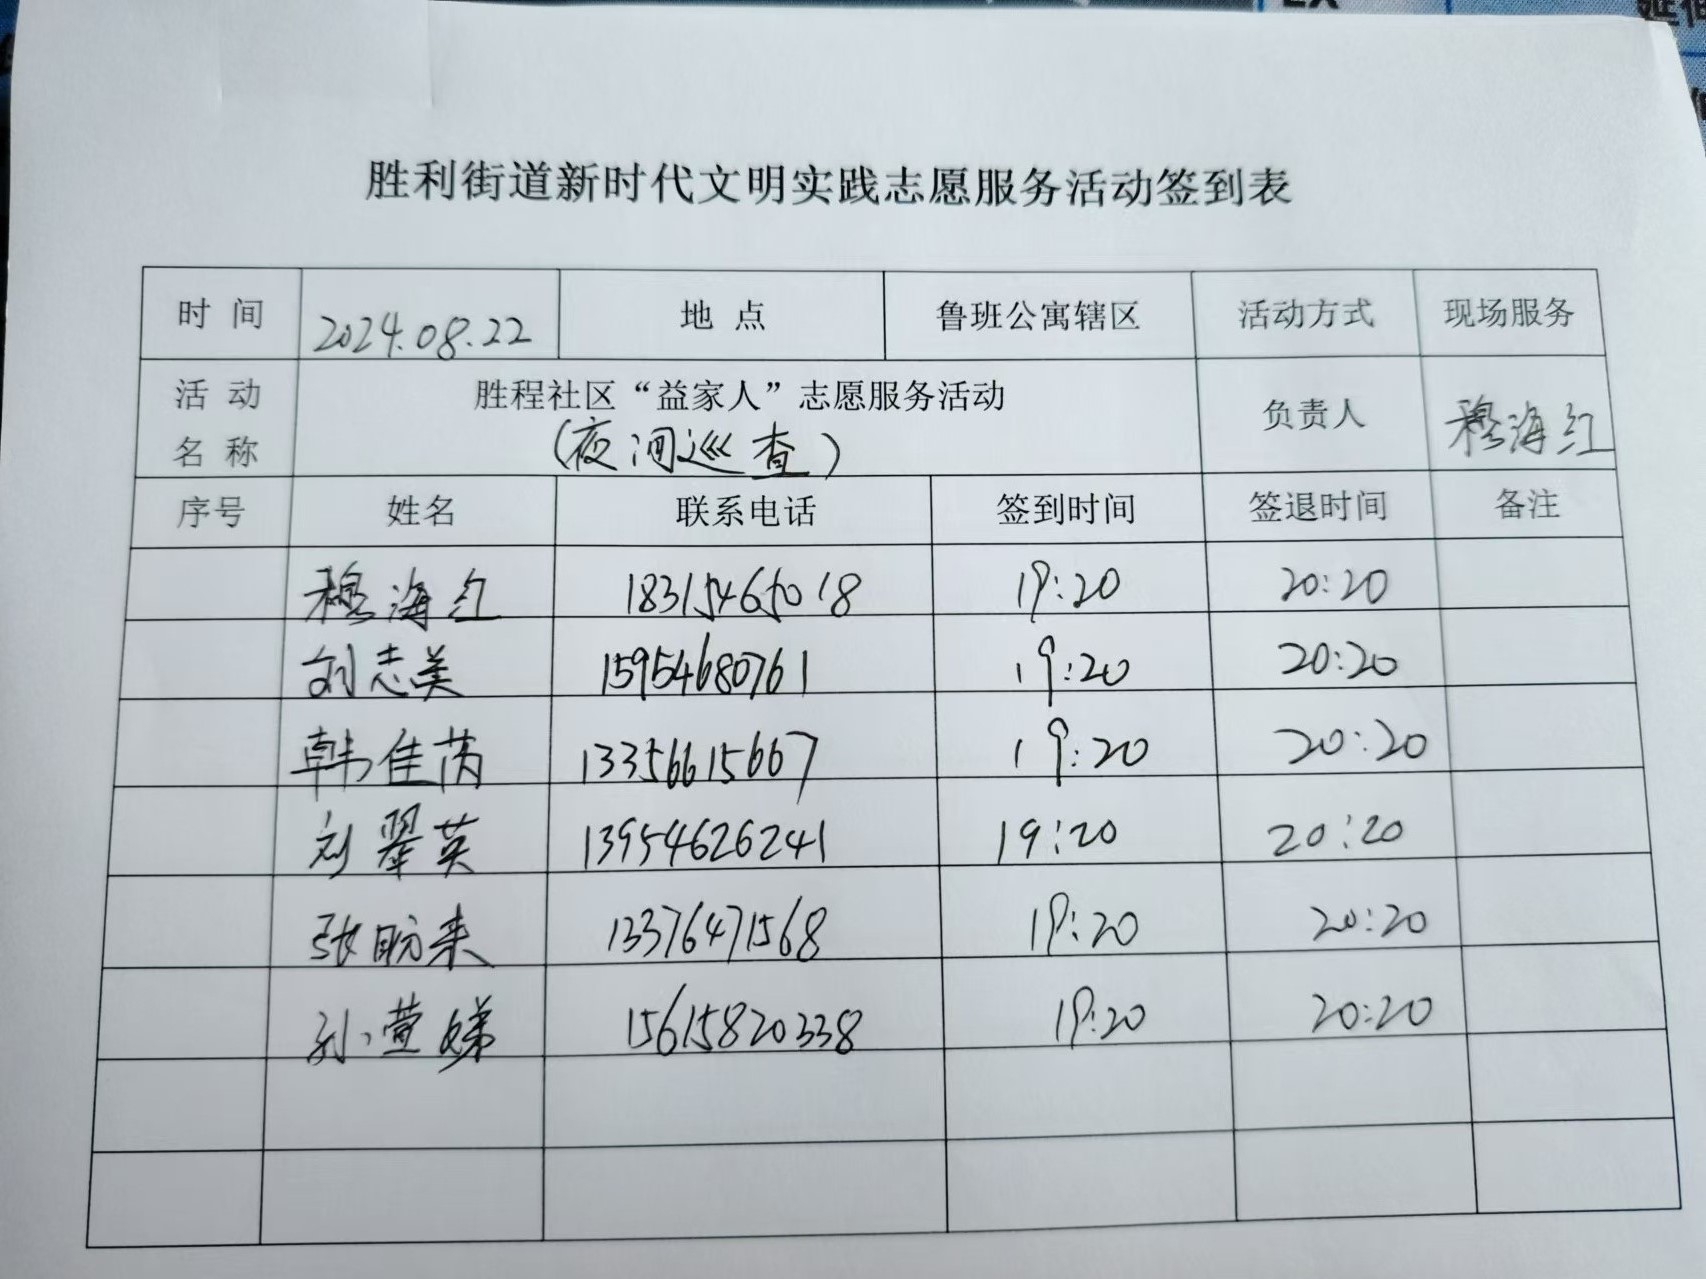 胜利街道新时代文明实践志愿服务活动签到表
时 间 2024.08.22 地 点 鲁班公寓辖区 活动方式 现场服务
活 动 名 称 胜程社区“益家人”志愿服务活动 (夜间巡查) 负责人 穆海红
序号 姓名 联系电话 签到时间 签退时间 备注
穆海红 18315465018 19:20 20:20
刘志美 15954680761 19:20 20:20
韩佳芮 13356615667 19:20 20:20
刘翠英 13954626241 19:20 20:20
张盼来 13376471568 19:20 20:20
孙萱娣 15615820338 19:20 20:20